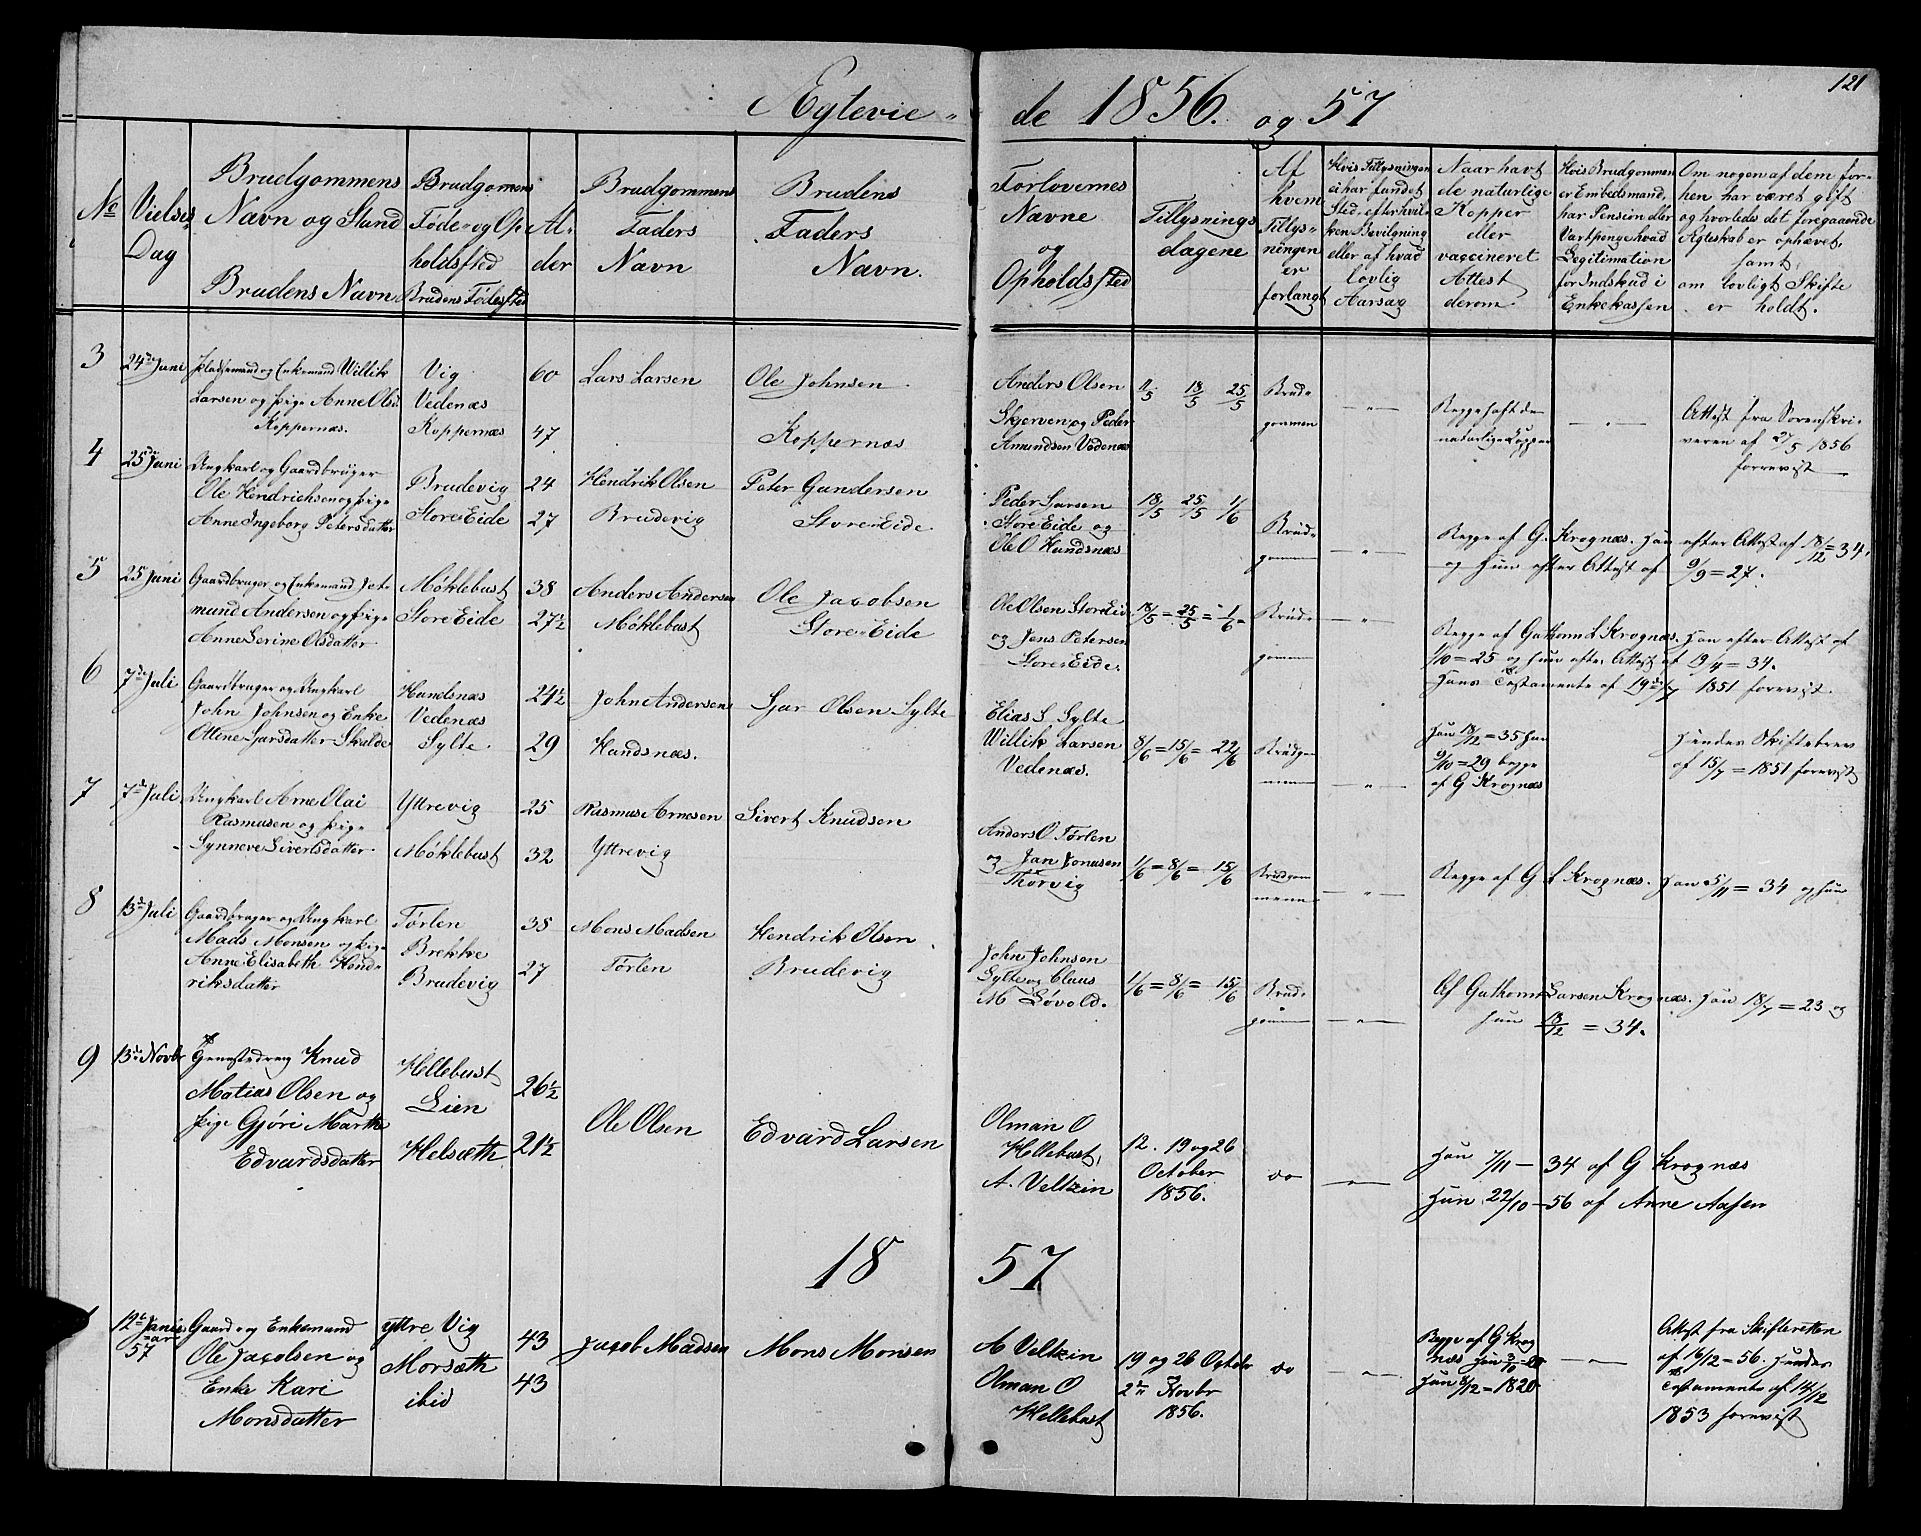 Ægtevie-
de 1856. og 57
121
No
Vielses
Dag
Brudgommens
Navn og Stand
Brudens Navn
Brudgomens
Føde- og Op-
holdssted
Brudens Fødested
Al-
der
Brudgommens
Faders
Navn
Brudens
Faders
Navn.
Forlovernes
Navne
og
Opholdssted
Tillysnings
dagene
Af
hvem
Tillys-
ningen
er
forlangt
Hvis Tillysningen
ei har fundet
Sted, efter hvil-
ken Bevilgning
eller af hvad
lovlig
Aarsag
Naar havt
de naturlige
Kopper
eller
vaccineret
Attest
derom.
Hvis Brudgommen
er Embedsmand,
har Pension eller
Vartpenge hvad
Legitimation
for Indskud i
Enkekassen
Om nogen af dem for-
hen har været gift
og hvorledes det foregaaende
Ægteskab er ophævet,
samt,
om lovligt Skifte
er holdt.
3
24de Juni
Pladsemand og Enkemand Willik
Larsen og Pige Anne Olsd
Koppernæs.
Vig
Vedenæs
Koppernæs
60
47
Lars Larsen
Ole Johnsen
Koppernæs
Anders Olsen
Skjerven og Peder
Amundsen Vedenæs
11/5 18/5 25/5
Brud-
gommen
— " —
Begge haft de
naturlige Kopper
— " —
Attest fra Sorenskri-
veren af 27/5 1856
forevist
4
25de Juni
Ungkarl og Gaardbruger
Ole Hendrichsen og Pige
Anne Ingeborg Petersdatter
Brudevig
Store Eide
24
27
Hendrik Olsen
Brudevig
Peter Gundersen
Store Eide
Peder Larsen
Store Eide og
Ole O Hundsnæs
18/5 25/5 1/6
Brud-
gommen
— " —
Begge af G. Krognæs. Han efter Attest af 18/12=34.
og Hun efter Attest af 9/9=27.
5
25 Juni
Gaardbruger og Enkemand Jet-
mund Andersen og Pige
Anne Serine Olsdatter
Møklebust
Store Eide
38
27½
Anders Andersen
Møklebust
Ole Jacobsen
Store-Eide
Ole Olsen Store Eide
og Jens Petersen
Store Eide.
18/5 = 25/5 = 1/6
Brud-
gommen
— " —
Begge af Guthorm L Krognæs. Han efter Attest af
1/10=25 og Hun efter Attest af 19/4=34.
Hans Testamente af 19de/7 1851 forevist.
6
7de Juli
Gaardbruger og Ungkarl
John Johnsen og Enke
Ottine Sjursdatter Skulde
Hundenæs
Vedenæs
Sylte
24½
29
John Andersen
Hundsnæs.
Sjur Olsen Sylte
Elias S Sylte
Willik Larsen
Vedenæs.
8/6=15/6=22/6
Brudgo-
mmen
— " —
Han 18/12=35 Hun
9/10=29 begge
af G Krognæs
Hendes Skiftebrev
af 15/7=1851 forevist
7
7de Juli
Ungkarl Arne Olai
Rasmusen og Pige
Synneve Sivertsdatter
Yttrevig
Møklebust
25
32
Rasmus Arnesen
Yttrevig
Sivert Knudsen
Anders O Tørlen
og Jan Jonasen
Thorvig
1/6=8/6=15/6
Brudgom
mene
— " —
Begge af G L Krognæs. Han 5/11=34 og Hun
8
13de Juli
Gaardbruger og Ungkarl
Mads Monsen og Pige
Anne Elisabeth Hend-
riksdatter
Tørlen
Brekke
Brudevig
38
27
Mons Madsen
Tørlen
Hendrik Olsen
Brudevig
John Johnsen
Sylte og Claus
M Løvold.
1/6=8/6=15/6
Brud-
gommen
— " —
Af Guthorm Larsen Krognæs. Han 18/7=23 og
Hun 18/12=34.
9
13de Novbr
Tjenestedreng Knud
Matias Olsen og
Pige Gjøri Marthe
Edvardsdatter
Hellebust
Lien
Helsæth
26½
21½
Ole Olsen
Edvard Larsen
Olman O
Hellebust,
A. Veltzin
12. 19 og 26
October
1856.
do
— " —
Han 7/11 — 34 af G Krognæs
Hun 22/10—56 af Anne Aasen
1857
1
12te Janu-
ar
57
Gaard- og Enkemand
Ole Jacobsen og
Enke Kari
Monsdatter
Yttre Vig
Morsæth
ibid
43
43
Jacob Madsen
Mons Monsen
A Veltzin
Olman O
Hellebust
19 og 26 Octobr
2de Novbr
1856.
do
— " —
Begge af G Krog
næs
Hun 8/12=1820
— " —
Attest fra Skifteretten
af 16/12=56. Hendes
Testamente af 14/12
1853 forevist